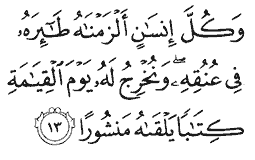 وَكُلَّ إِنسَٰنٍ أَلْزَمْنَٰهُ طَٰٓئِرَهُۥ
فِى عُنُقِهِۦ ۖ وَنُخْرِجُ لَهُۥ يَوْمَ ٱلْقِيَٰمَةِ
كِتَٰبًا يَلْقَىٰهُ مَنشُورًا ١٣